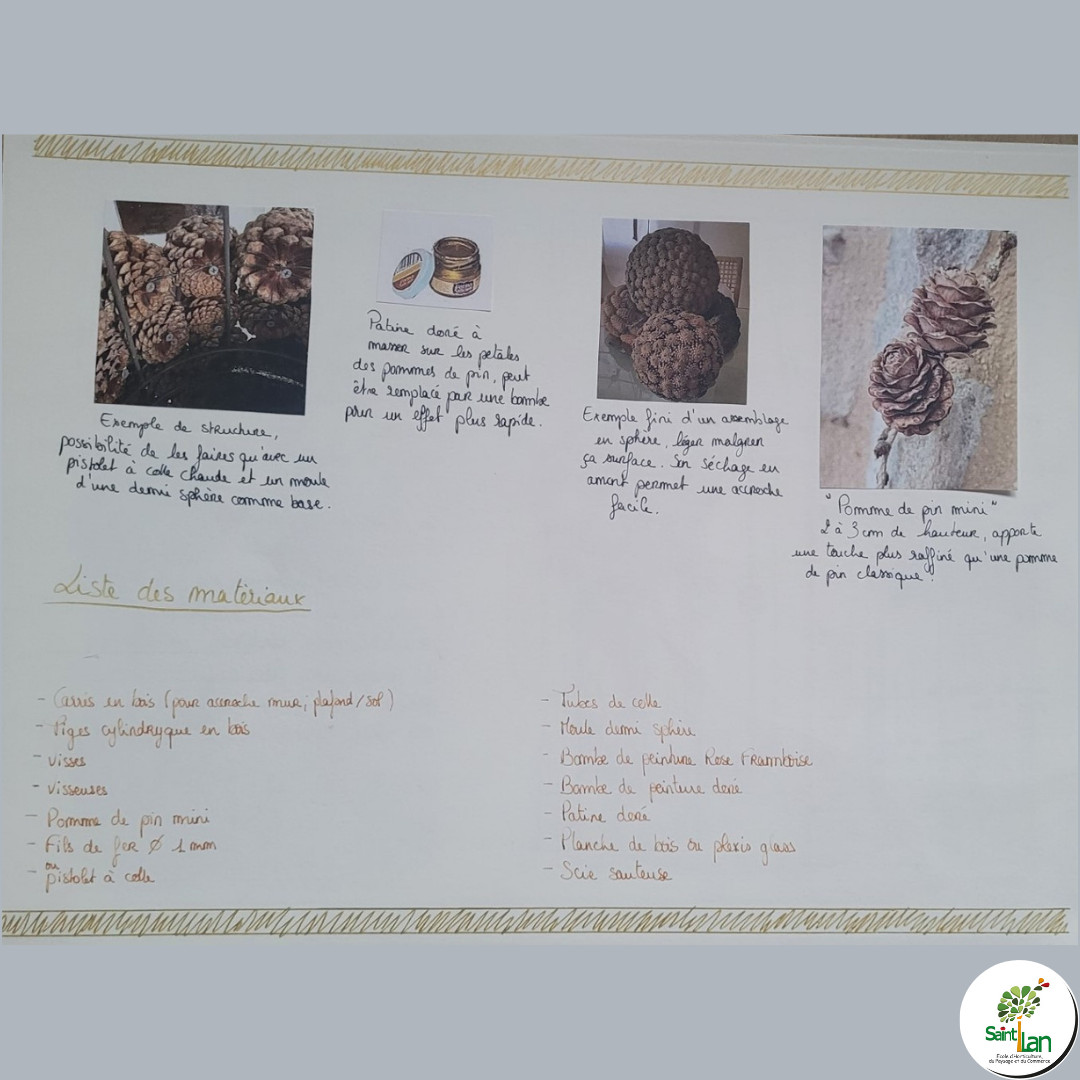 Exemple de structure,
possibilité de les faires qu'avec un
pistolet à colle chaude et un moule
d'une demi sphère comme base.
Patine doré à
masser sur les pétales
des pommes de pin, peut
être remplacé par une bombe
pour un effet plus rapide.
Exemple fini d'un assemblage
en sphère, léger malgren
ça surface. Son séchage en
amont permet une accroche
facile.
"Pomme de pin mini"
2 à 3 cm de hauteur, apporte
une touche plus raffiné qu'une pomme
de pin classique.
Liste des matériaux
- Carrés en bois (pour accroche mur; plafond/sol)
- Tiges cylindryque en bois
- visses
- visseuses
- Pomme de pin mini
- Fils de fer Ø 1 mm
ou
- pistolet à colle
- Tubes de colle
- Moule demi sphère
- Bombe de peinture Rose Framboise
- Bombe de peinture doré
- Patine doré
- Planche de bois ou plexis glass
- Scie sauteuse
Saint Ilan
Ecole d'Horticulture,
du Paysage et du Commerce